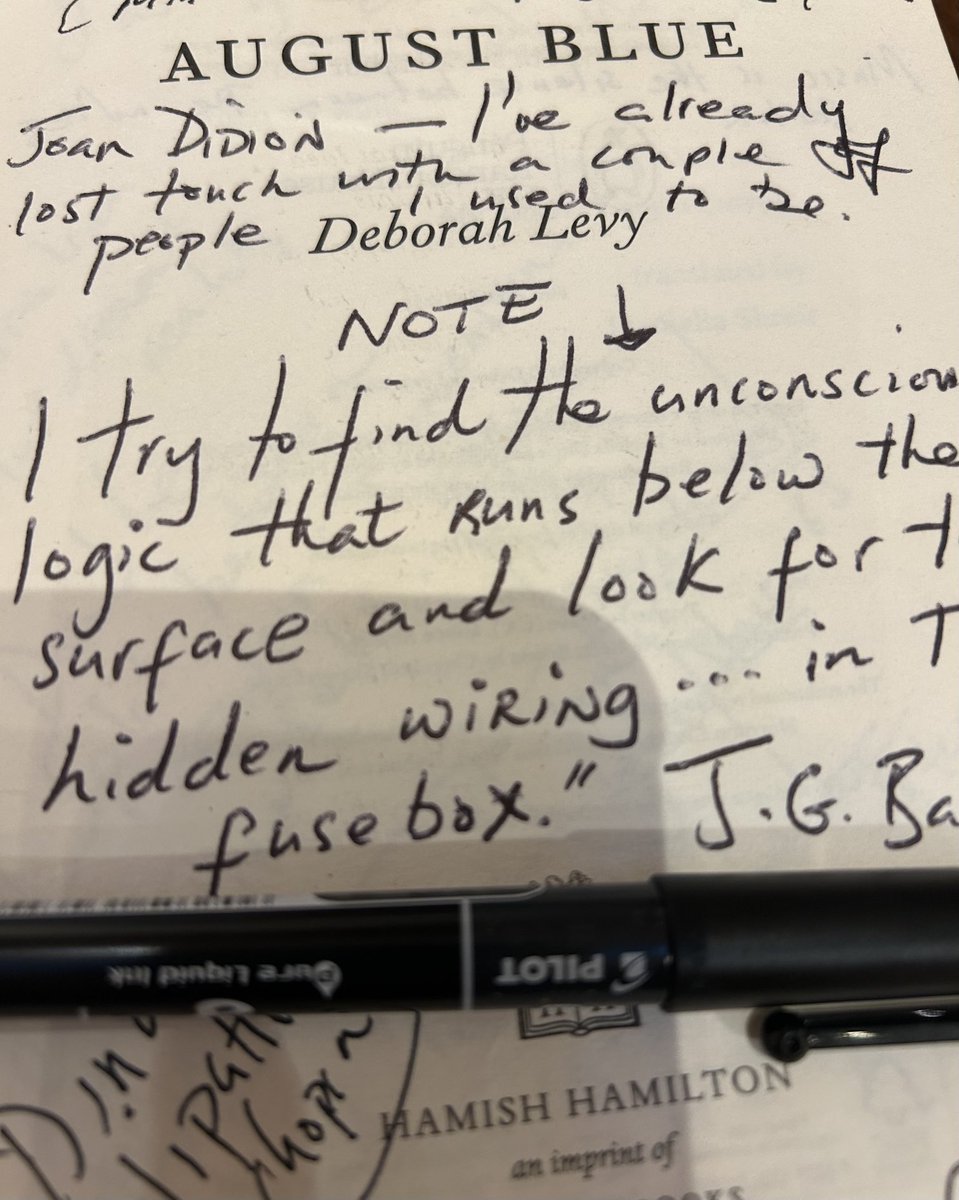 AUGUST BLUE
Joan DiDiON — I've already
lost touch with a couple of
people I used to be.
Deborah Levy
NOTE ↓
I try to find the unconsciou
logic that runs below the
surface and look for t
hidden wiRiNg ... in T
fuse box." J.G. Ba
PILOT
Pure Liquid Ink
HAMISH HAMILTON
an imprint of
BOOKS